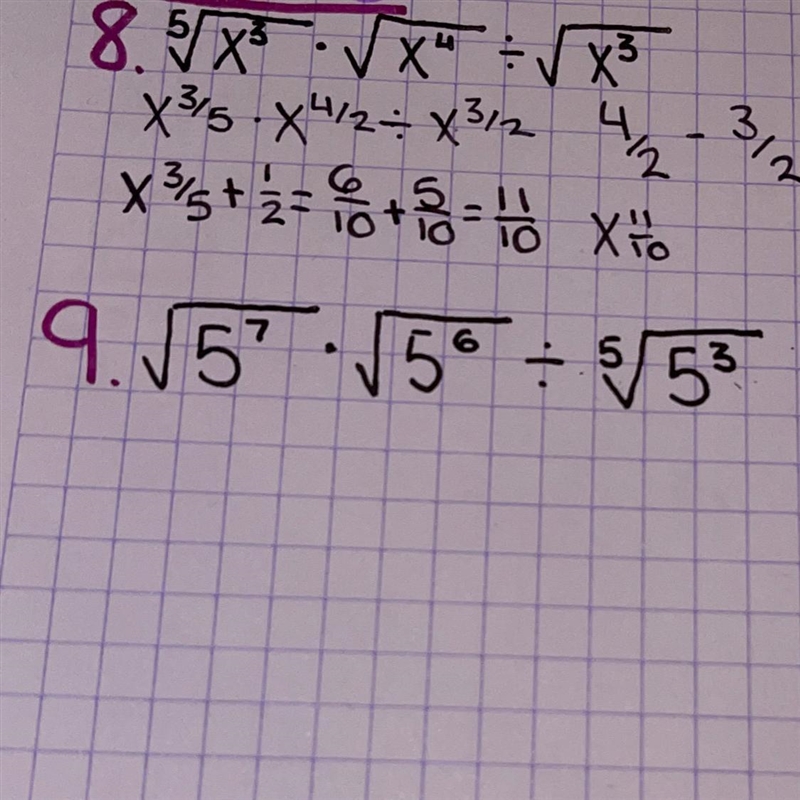 8. ⁵√x³ · √x⁴ ÷ √x³
x^3/5 · x^4/2 ÷ x^3/2 4/2 - 3/2
x^3/5 + 1/2 = 6/10 + 5/10 = 11/10 x^11/10
9. √5⁷ · √5⁶ ÷ ⁵√5³